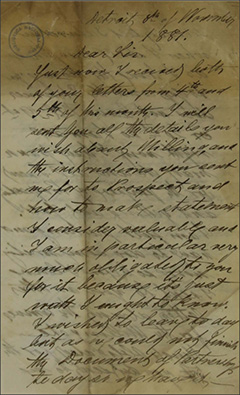 Detroit 8th of November
1881.
Dear Sir.
Just now I received both
of your letters from 4th and
5th of this month. I will
send you all the details you
wish about Milling and
the instructions you sent
me for to prospect and
how to make
I consider valuable and
I am in particular very
much obligated to you
for it because it's just
what I ought to know.
I wished to leave to day
but as I could not finish
the Document of Partnership
to day